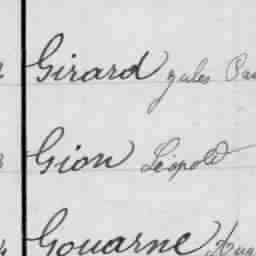 Girard Jules
Gion Léopold
Gouarne